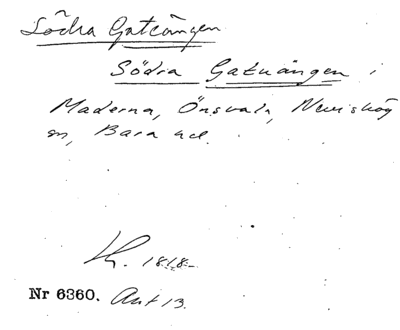 Södra Gatvången
Södra Gatuången i
Maderna, Önsvala, Nevishög
sn, Bara hd.
Kr. 1818.
Nr 6360. Akt 13.